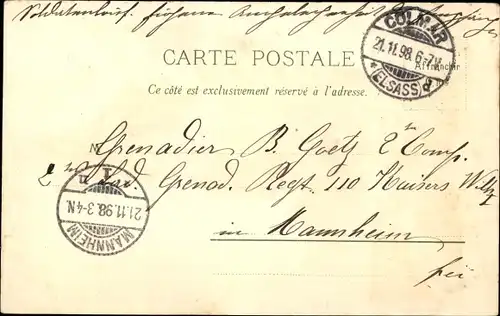 Soldatenbrief.
COLMAR
21.11.98. 6-7V.
* (ELSASS) d
CARTE POSTALE
Affranchir
Ce côté est exclusivement réservé à l'adresse.
Grenadier B. Goetz 2 Comp.
2 Grenad. Regt. 110 Kaisers
in Mannheim
frei
MANNHEIM
21.11.98. 3-4N.
1